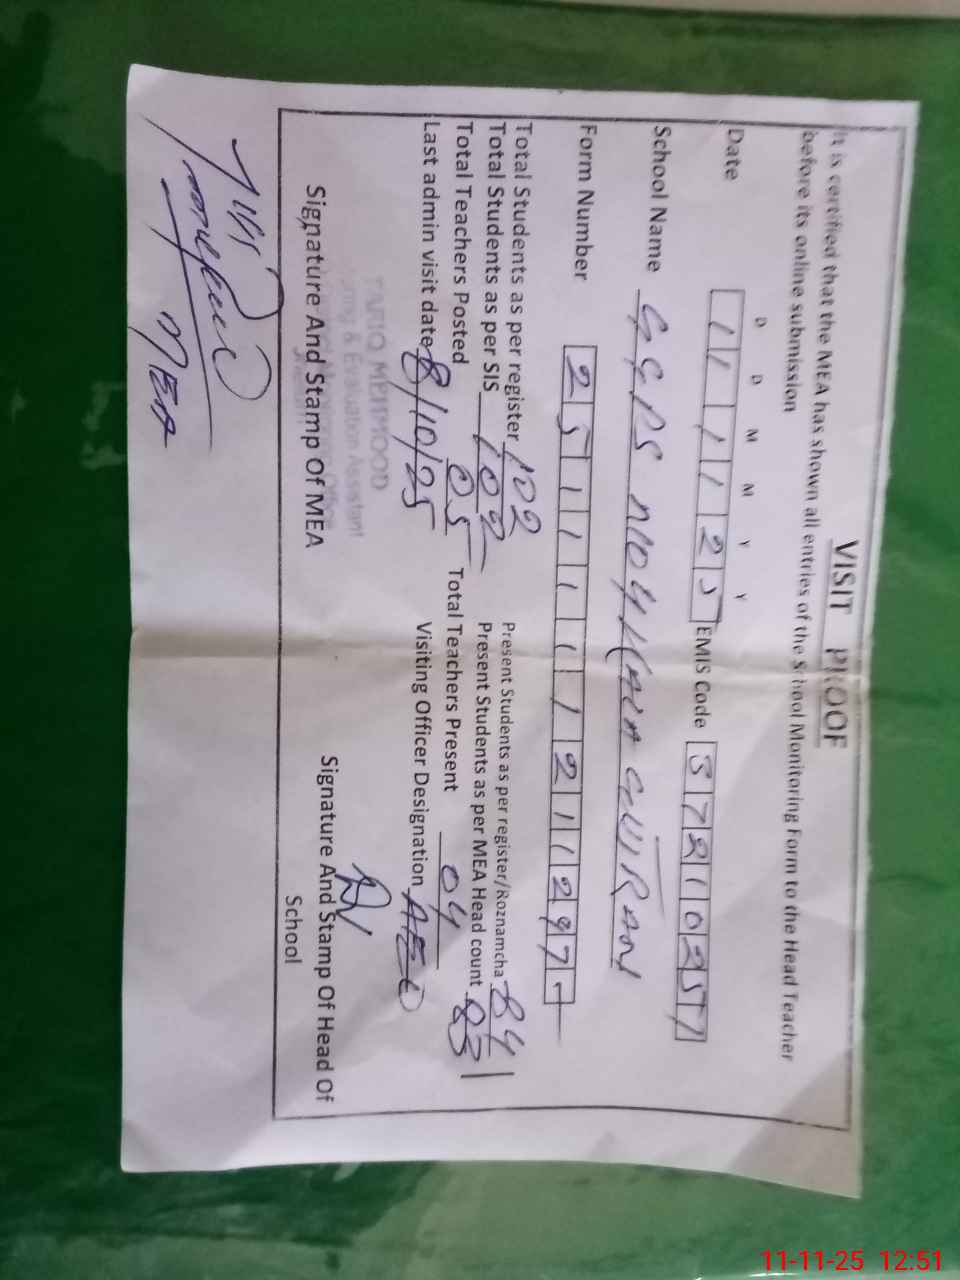 VISIT PROOF
It is certified that the MEA has shown all entries of the School Monitoring Form to the Head Teacher
before its online submission
D D M M Y Y
Date 11 11 25 EMIS Code 37210257
School Name GGPS
Form Number 2511111211297-
Total Students as per register 102 Present Students as per register/Roznamcha 84
Total Students as per SIS 102 Present Students as per MEA Head count 83
Total Teachers Posted 05 Total Teachers Present 04
Last admin visit date 8/10/25 Visiting Officer Designation AEO
TARIQ MEHMOOD
& Evaluation Assistant
Signature And Stamp Of MEA Signature And Stamp Of Head Of
School
MEA
11-11-25 12:51